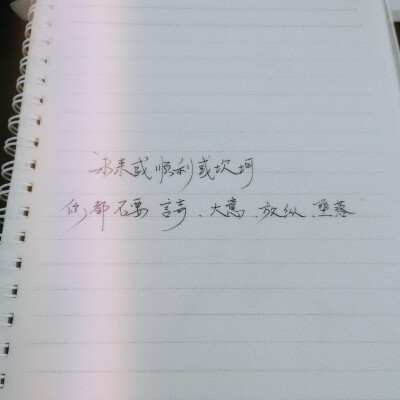 未来或顺利或坎坷
你都不要言弃、大意、放纵、堕落